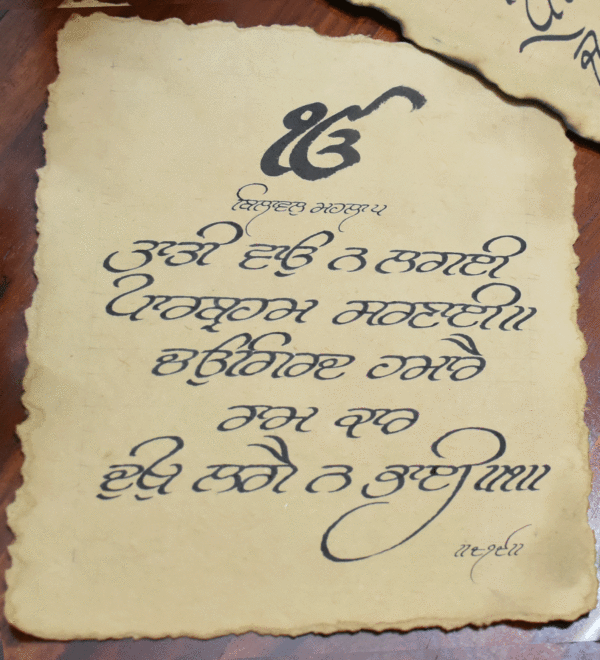 ੴ
ਬਿਲਾਵਲੁ ਮਹਲਾ ੫
ਤਾਤੀ ਵਾਉ ਨ ਲਗਈ
ਪਾਰਬ੍ਰਹਮ ਸਰਣਾਈ॥
ਚਉਗਿਰਦ ਹਮਾਰੈ
ਰਾਮ ਕਾਰ
ਦੁਖੁ ਲਗੈ ਨ ਭਾਈ॥੧॥
॥੮੧੯॥